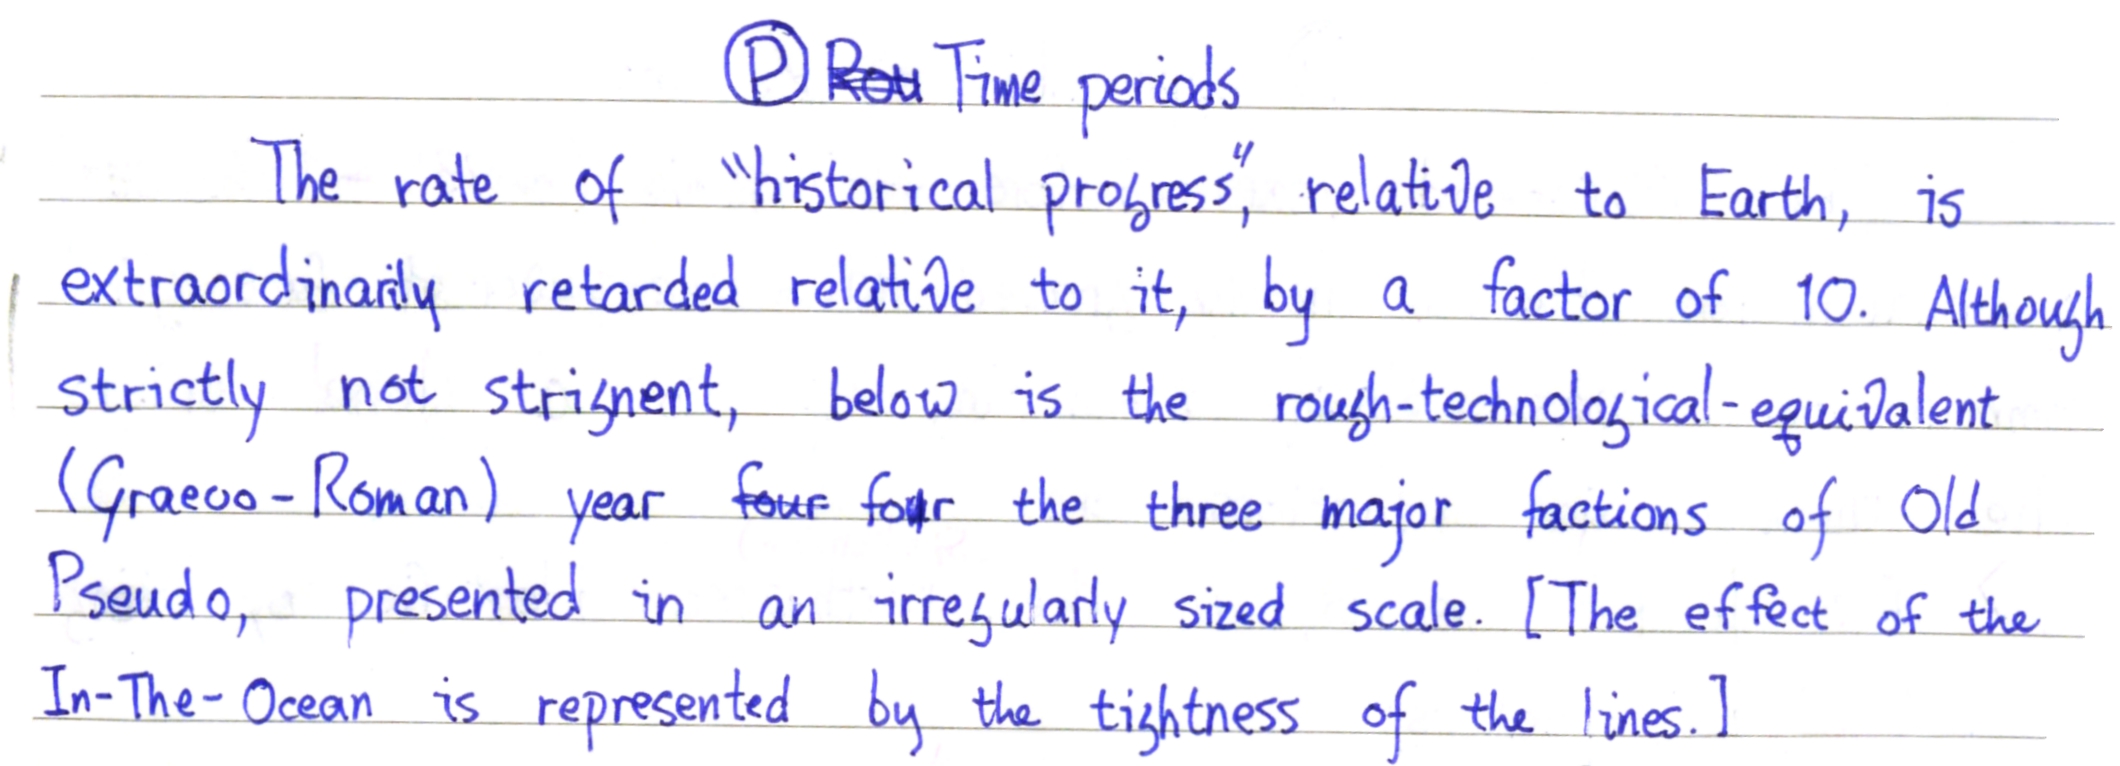 Ⓟ Time periods
The rate of "historical progress", relative to Earth, is
extraordinarily retarded relative to it, by a factor of 10. Although
strictly not strignent, below is the rough-technological-equivalent
(Graeco-Roman) year four for the three major factions of Old
Pseudo, presented in an irregularly sized scale. [The effect of the
In-The-Ocean is represented by the tightness of the lines.]